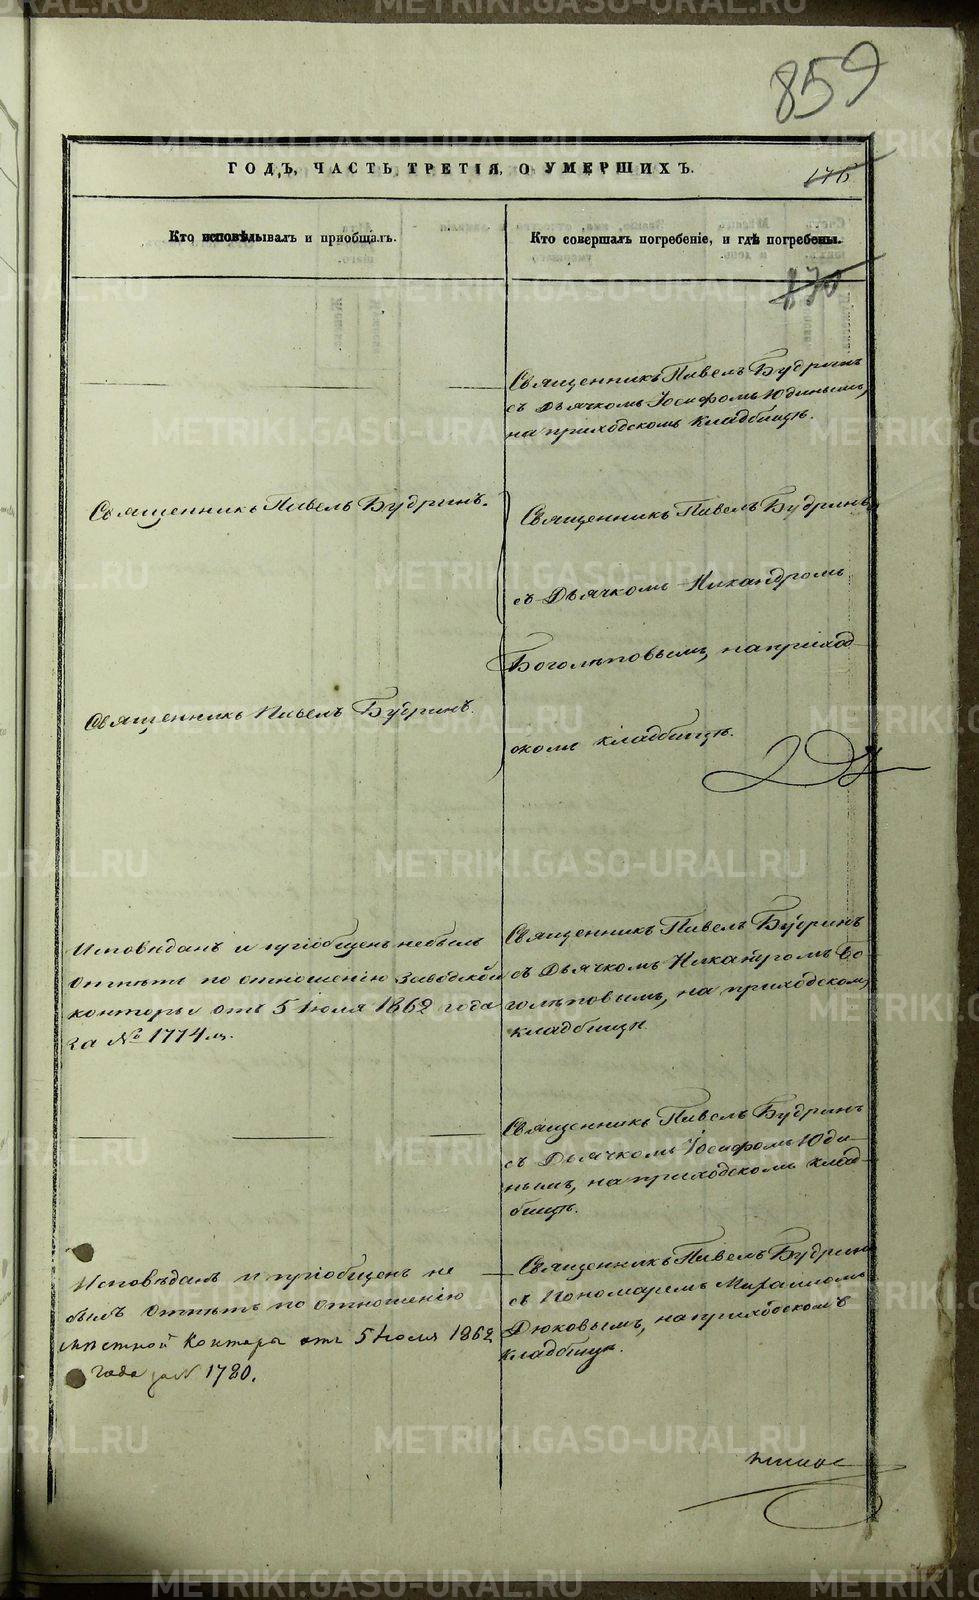 859
ГОДЪ, ЧАСТЬ ТРЕТІЯ, О УМЕРШИХЪ.
176
Кто исповѣдывалъ и приобщалъ.
Кто совершалъ погребеніе, и гдѣ погребены.
170
Священникъ Павелъ Будринъ
съ Дьячкомъ Іосифомъ Юдинымъ,
на приходскомъ кладбищѣ.
Священникъ Павелъ Будринъ.
Священникъ Павелъ Будринъ
съ Дьячкомъ Никандромъ
Боголѣповымъ, на приход-
скомъ кладбищѣ.
Священникъ Павелъ Будринъ.
Исповѣданъ и пріобщенъ небылъ
Отпѣтъ по отношенію Заводской
конторы отъ 5 Іюля 1862 года
за № 1774м.
Священникъ Павелъ Будринъ
съ Дьячкомъ Никандромъ Бо-
голѣповымъ, на приходскомъ
кладбищѣ.
Священникъ Павелъ Будринъ
съ Дьячкомъ Іосифомъ Юди-
нымъ, на приходскомъ клад-
бищѣ.
Исповѣданъ и пріобщенъ не
былъ Отпѣтъ по отношенію
мѣстной Конторы отъ 5 Іюля 1862
года за N 1780.
Священникъ Павелъ Будринъ
съ Пономаремъ Михаиломъ
Дюковымъ, на приходскомъ
кладбищѣ.
METRIKI.GASO-URAL.RU